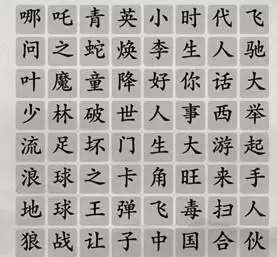 哪吒青英小时代飞
问之蛇焕李生人驰
叶魔童降好你话大
少林破世人事西举
流足坏门生大游起
浪球之卡角旺来手
地球王弹飞毒扫人
狼战让子中国合伙